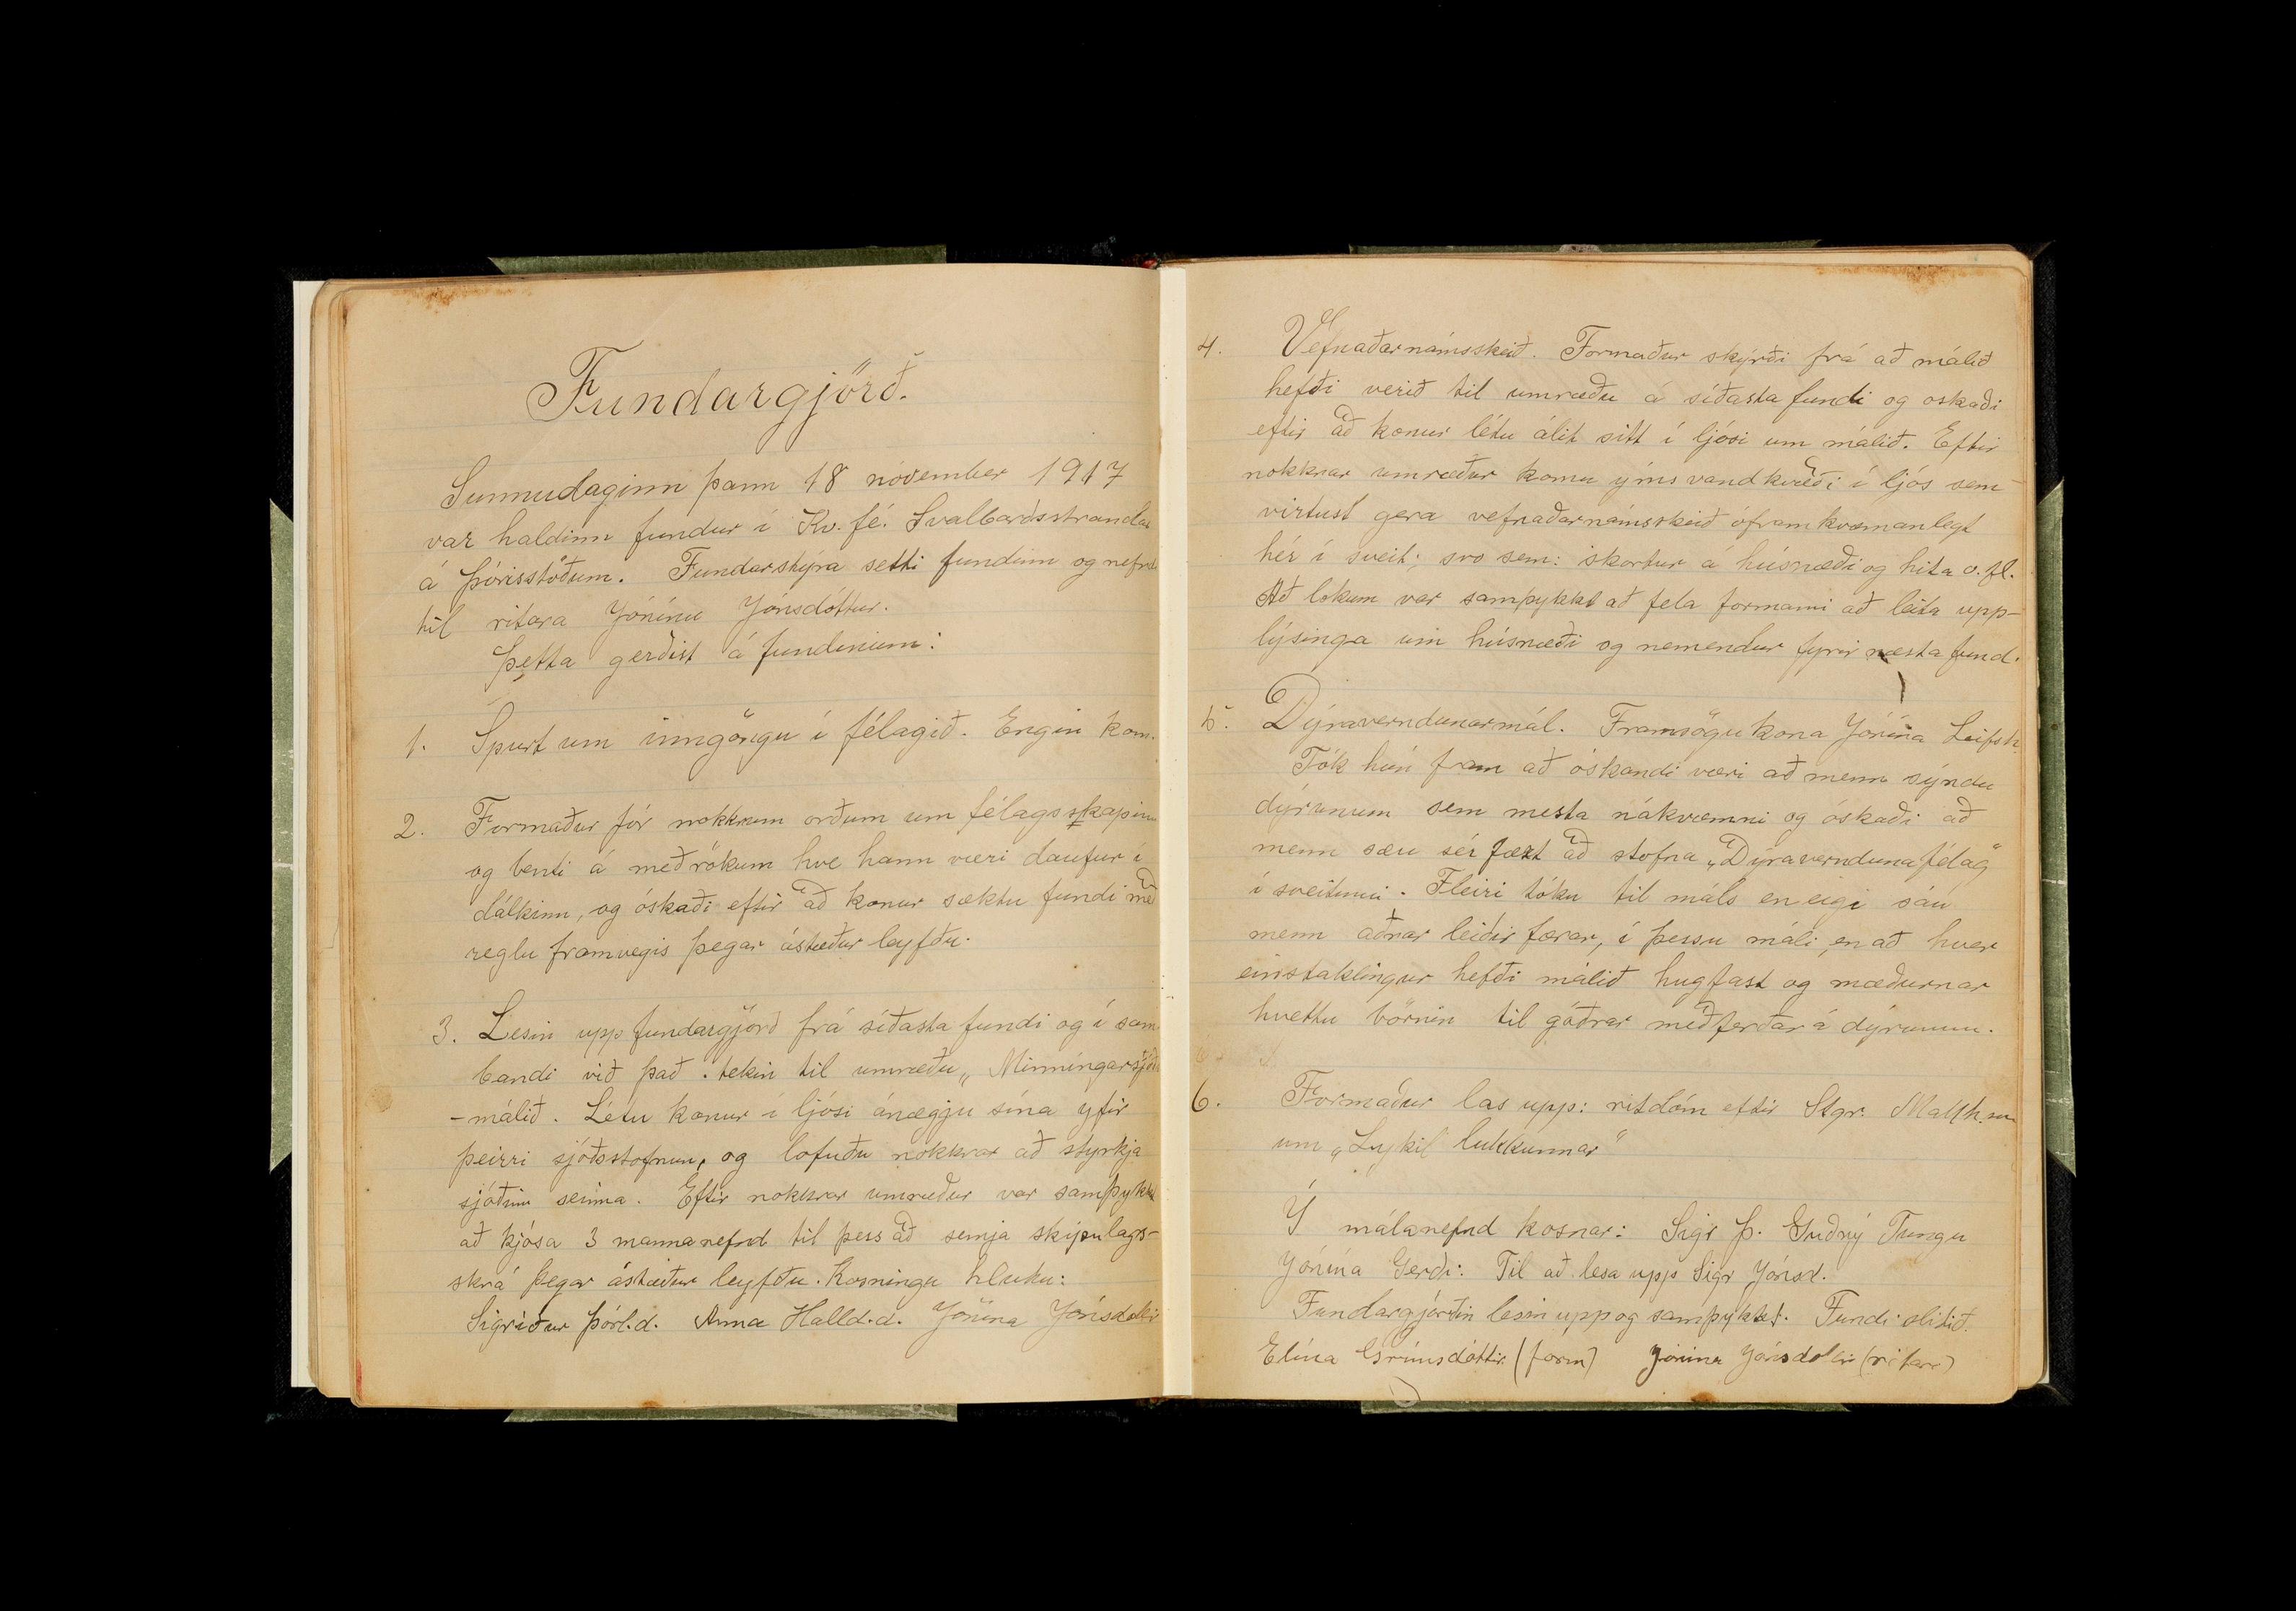 Fundargjörð.
Sunnudaginn þann 18 nóvember 1917
var haldinn fundur í Kv. fé. Svalbardsstrandar
á Þórisstöðum. Fundarstýra setti fundinn og nefndi
til ritara Jónínu Jónsdóttur.
Þetta gerðist á fundinum:
1. Spurt um inngöngu í félagið. Engin kom.
2. Formaður fór nokkrum orðum um félagsskapinn
og benti á með rökum hve hann væri daufur í
dálkinn, og óskaði eftir að konur sæktu fundi með
reglu framvegis þegar ástæður leyfðu.
3. Lesin upp fundargjörð frá síðasta fundi og í sam
bandi við það tekin til umræðu „Minningarsjóðs
-málið. Létu konur í ljósi ánægju sína yfir
þeirri sjóðsstofnun, og lofuðu nokkrar að styrkja
sjóðinn seinna. Eftir nokkrar umræður var samþykkt
að kjósa 3 manna nefnd til þess að semja skipulags-
skrá þegar ástæður leyfðu. Kosningu hlutu:
Sigríður Þórl.d. Anna Halld.d. Jónína Jónsdóttir
4. Vefnaðarnámsskeið. Formaður skýrði frá að málið
hefði verið til umræðu á síðasta fundi og oskaði
eftir að konur létu álit sitt í ljósi um málið. Eftir
nokkrar umræður komu ýms vandkvæði í ljós sem
virtust gera vefnaðarnámsskeið óframkvæmanlegt
hér í sveit; svo sem: skortur á húsnæði og hita o.fl.
Að lokum var samþykkt að fela formanni að leita upp-
lýsinga um húsnæði og nemendur fyrir næsta fund.
5. Dýraverndunarmál. Framsögukona Jónína Leifsh.
Tók hún fram að óskandi væri að menn sýndu
dýrunum sem mesta nákvæmni og óskaði að
menn sæu sér fært að stofna „Dýraverndunafélag"
í sveitinni. Fleiri tóku til máls en eigi sáu
menn aðrar leiðir færar, í þessu máli, en að hver
einstaklingur hefði málið hugfast og mæðurnar
hvettu börnin til góðrar meðferðar á dýrunum.
6. Formaður las upp: ritdóm eftir Stgr. Matth.son
um „Lykil lukkunnar"
Í málanefnd kosnar: Sigr Þ. Guðný Tungu
Jónína Gerði: Til að lesa upp Sigr Jónsd.
Fundargjörðin lesin upp og samþykkt. Fundi slitið.
Elína Grímsdóttir (form) Jónína Jónsdóttir (ritari)